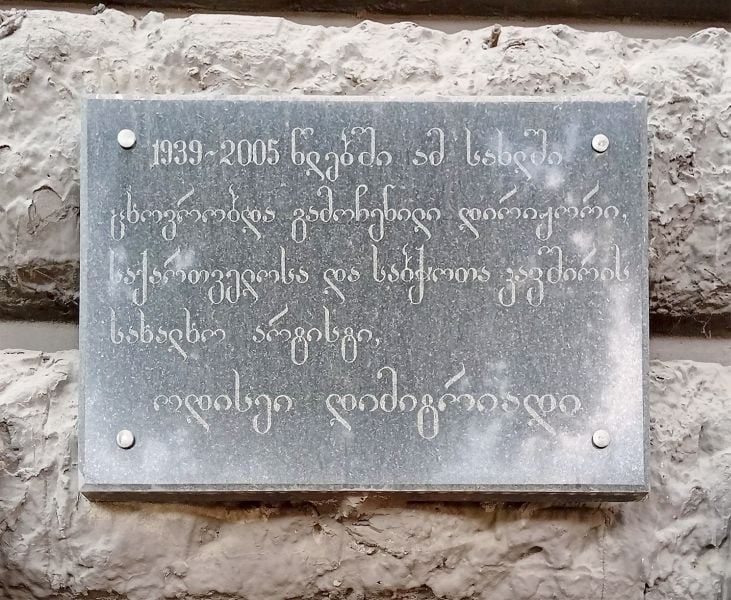 1939-2005 წლებში ამ სახლში
ცხოვრობდა გამოჩენილი დირიჟორი,
საქართველოსა და საბჭოთა კავშირის
სახალხო არტისტი,
ოდისეი დიმიტრიადი